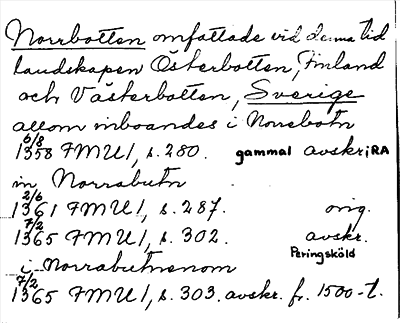 Norrbotten omfattade vid denna tid
landskapen Österbotten, Finland
och Västerbotten, Sverige
allom inboandes i Norrebotn
6/8
1358 FMU I, s. 280. gammal avskr. i RA
in Norrabutn
2/6
1361 FMU I, s. 287. orig.
7/2
1365 FMU I, s. 302. avskr.
Peringsköld
i Norrabutnenom
7/2
1365 FMU I, s. 303. avskr. fr. 1500-t.